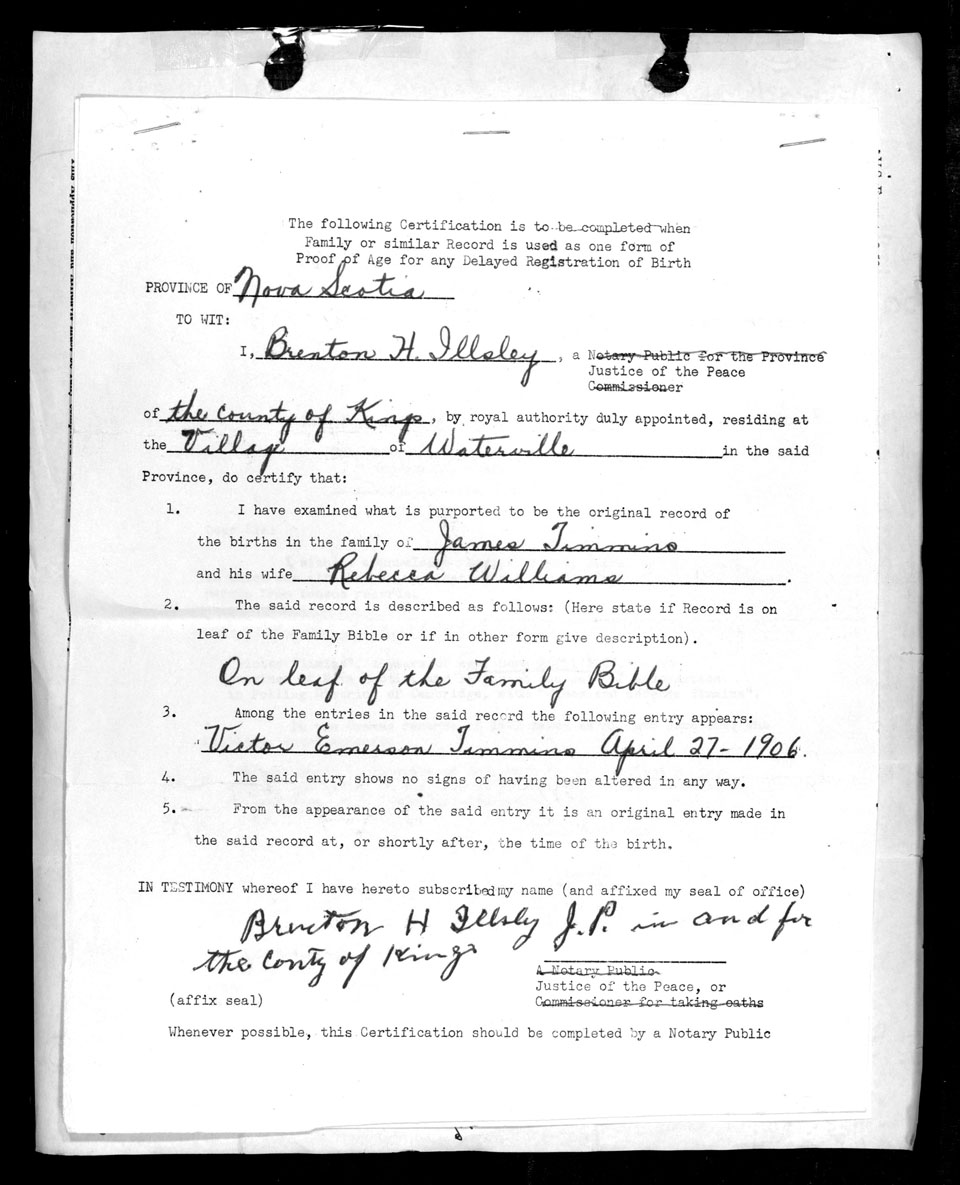 The following Certification is to be completed when
Family or similar Record is used as one form of
Proof of Age for any Delayed Registration of Birth
PROVINCE OF Nova Scotia
TO WIT:
I, Brenton H. Illsley, a Notary Public for the Province
Justice of the Peace
Commissioner
of the county of Kings, by royal authority duly appointed, residing at
the Village of Waterville in the said
Province, do certify that:
1. I have examined what is purported to be the original record of
the births in the family of James Timmins
and his wife Rebecca Williams.
2. The said record is described as follows: (Here state if Record is on
leaf of the Family Bible or if in other form give description).
On leaf of the Family Bible
3. Among the entries in the said record the following entry appears:
"Victor Emerson Timmins April 27-1906.
4. The said entry shows no signs of having been altered in any way.
5. From the appearance of the said entry it is an original entry made in
the said record at, or shortly after, the time of the birth.
IN TESTIMONY whereof I have hereto subscribed my name (and affixed my seal of office)
Brenton H Illsly J.P. in and for
the conty of Kings
A Notary Public
Justice of the Peace, or
(affix seal) Commissioner for taking oaths
Whenever possible, this Certification should be completed by a Notary Public